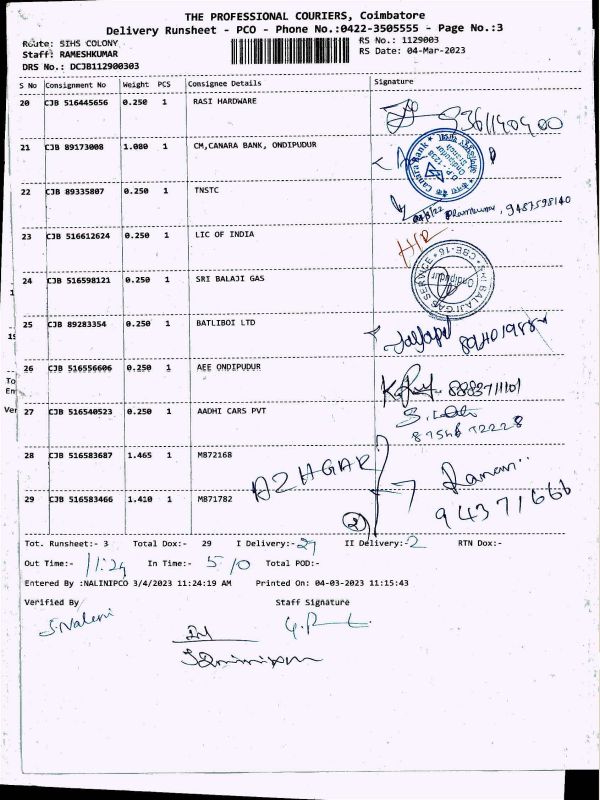 THE PROFESSIONAL COURIERS, Coimbatore
Delivery Runsheet - PCO - Phone No.:0422-3505555 - Page No.:3
Route: SIHS COLONY
RS No.: 1129003
Staff: RAMESHKUMAR
RS Date: 04-Mar-2023
DRS No.: DCJB112900303
S No Consignment No Weight PCS Consignee Details Signature
20 CJB 516445656 0.250 1 RASI HARDWARE
21 CJB 89173008 1.080 1 CM,CANARA BANK, ONDIPUDUR
Canara Bank
22 CJB 89335807 0.250 1 TNSTC
9487598140
23 CJB 516612624 0.250 1 LIC OF INDIA
24 CJB 516598121 0.250 1 SRI BALAJI GAS
SRI BALAJI GAS SERVICE * CBE-16 *
Ondipudur
25 CJB 89283354 0.250 1 BATLIBOI LTD
26 CJB 516556606 0.250 1 AEE ONDIPUDUR
8883711101
27 CJB 516540523 0.250 1 AADHI CARS PVT
28 CJB 516583687 1.465 1 M872168
AZHGAR
29 CJB 516583466 1.410 1 M871782
2
Tot. Runsheet:- 3 Total Dox:- 29 I Delivery:- 29 II Delivery:- 2 RTN Dox:-
Out Time:- 11:24 In Time:- 5:10 Total POD:-
Entered By :NALINIPCO 3/4/2023 11:24:19 AM Printed On: 04-03-2023 11:15:43
Verified By Staff Signature